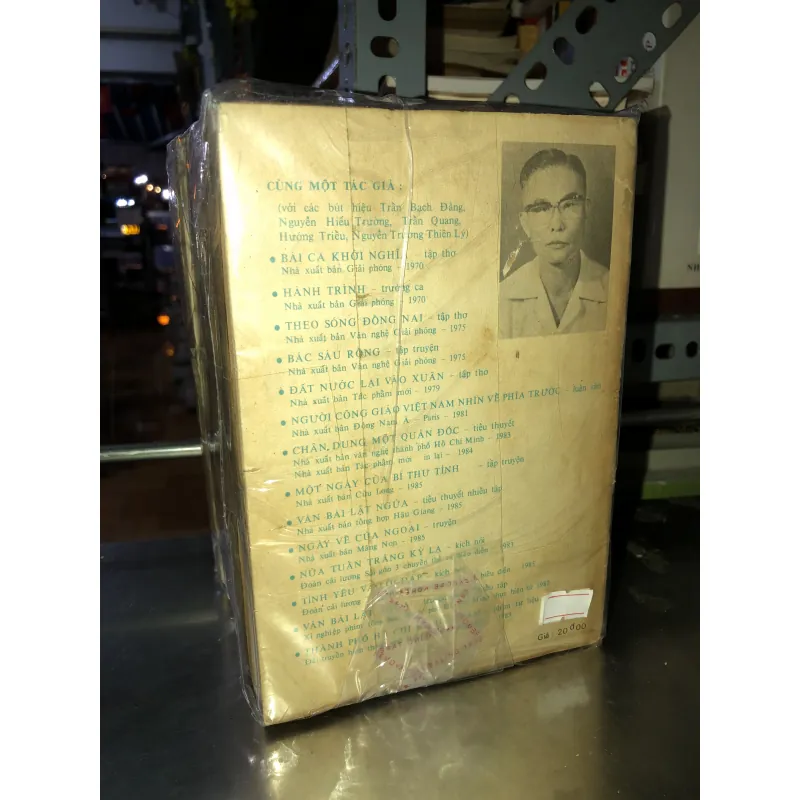 CÙNG MỘT TÁC GIẢ :
(với các bút hiệu Trần Bạch Đằng,
Nguyễn Hiểu Trường, Trần Quang,
Hưởng Triều, Nguyễn Trương Thiên Lý)
• BÀI CA KHỞI NGHĨA tập thơ
Nhà xuất bản Giải phóng - 1970
• HÀNH TRÌNH - trường ca
Nhà xuất bản Giải phóng - 1970
• THEO SÓNG ĐỒNG NAI - tập thơ
Nhà xuất bản Văn nghệ Giải phóng - 1975
• BÁC SÁU RỒNG - tập truyện
Nhà xuất bản Văn nghệ Giải phóng - 1975
• ĐẤT NƯỚC LẠI VÀO XUÂN - tập thơ
Nhà xuất bản Tác phẩm mới - 1979
• NGƯỜI CÔNG GIÁO VIỆT NAM NHÌN VỀ PHÍA TRƯỚC -
Nhà xuất bản Đông Nam Á - Paris - 1981
• CHÂN DUNG MỘT QUẢN ĐỐC - tiểu thuyết
Nhà xuất bản văn nghệ thành phố Hồ Chí Minh - 1983
Nhà xuất bản Tác phẩm mới in lại - 1984
• MỘT NGÀY CỦA BÍ THƯ TỈNH - tập truyện
Nhà xuất bản Cửu Long - 1985
• VÁN BÀI LẬT NGỬA - tiểu thuyết nhiều tập
Nhà xuất bản tổng hợp Hậu Giang - 1985
• NGÀY VỀ CỦA NGOẠI - truyện
Nhà xuất bản Măng Non - 1985
• NỬA TUẦN TRĂNG KỲ LẠ - kịch nói
Đoàn cải lương Sài Gòn 3 chuyển thể và biểu diễn
• TÌNH YÊU VÀ kịch
Đoàn cải lương biểu diễn 1985
• VÁN BÀI
Xí nghiệp phim
• THÀNH PHỐ
Đài truyền hình
Giá : 20đ00